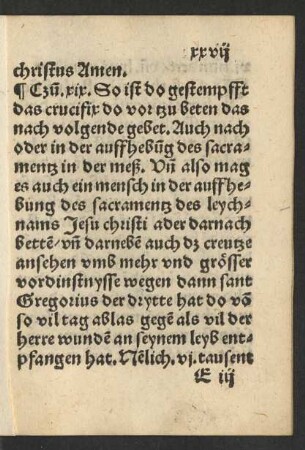 xxvij
christus Amen.
¶ Czū. xix. So ist do gestempfft
das crucifix do vor tzu beten das
nach volgende gebet. Auch nach
oder in der auffhebūg des sacra-
mentz in der meß. Vn̄ also mag
es auch ein mensch in der auffhe-
bung des sacramentz des leych-
nams Jesu christi ader darnach
bettē/ vn̄ darnebē auch dz creutze
ansehen vmb mehr vnd grösser
vordinstnysse wegen dann sant
Gregorius der drytte hat do vō
so vil tag ablas gegē als vil der
herre wundē an seynem leyb ent-
pfangen hat. Nēlich. vj. tausent
E iij